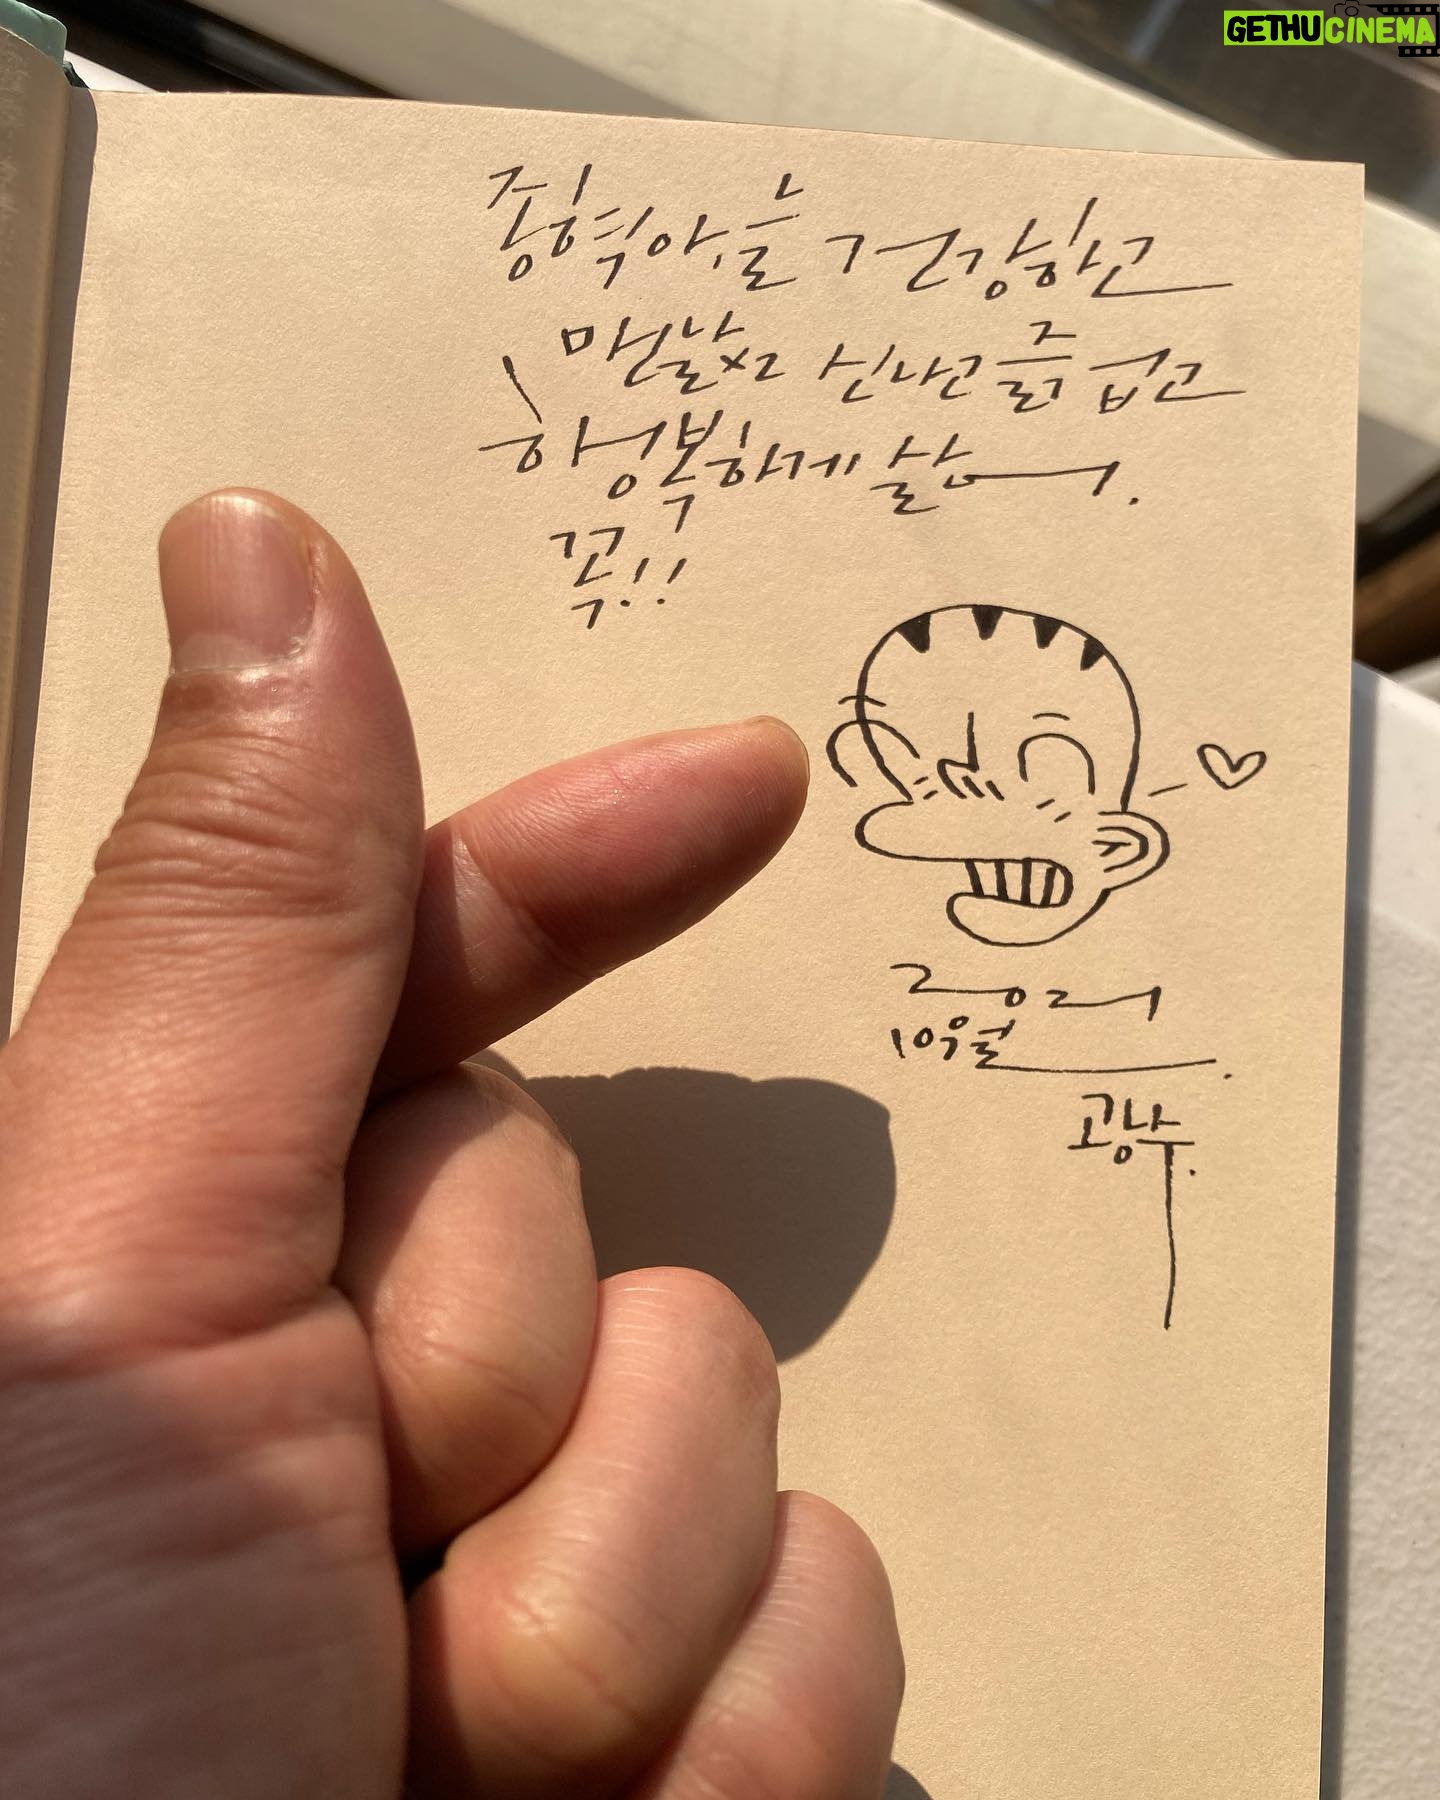 GETHUCINEMA
종혁아, 늘 건강하고
맨날x2 신나고 즐겁고
행복하게 살아.
꼭!!
2021
10월.
광수.